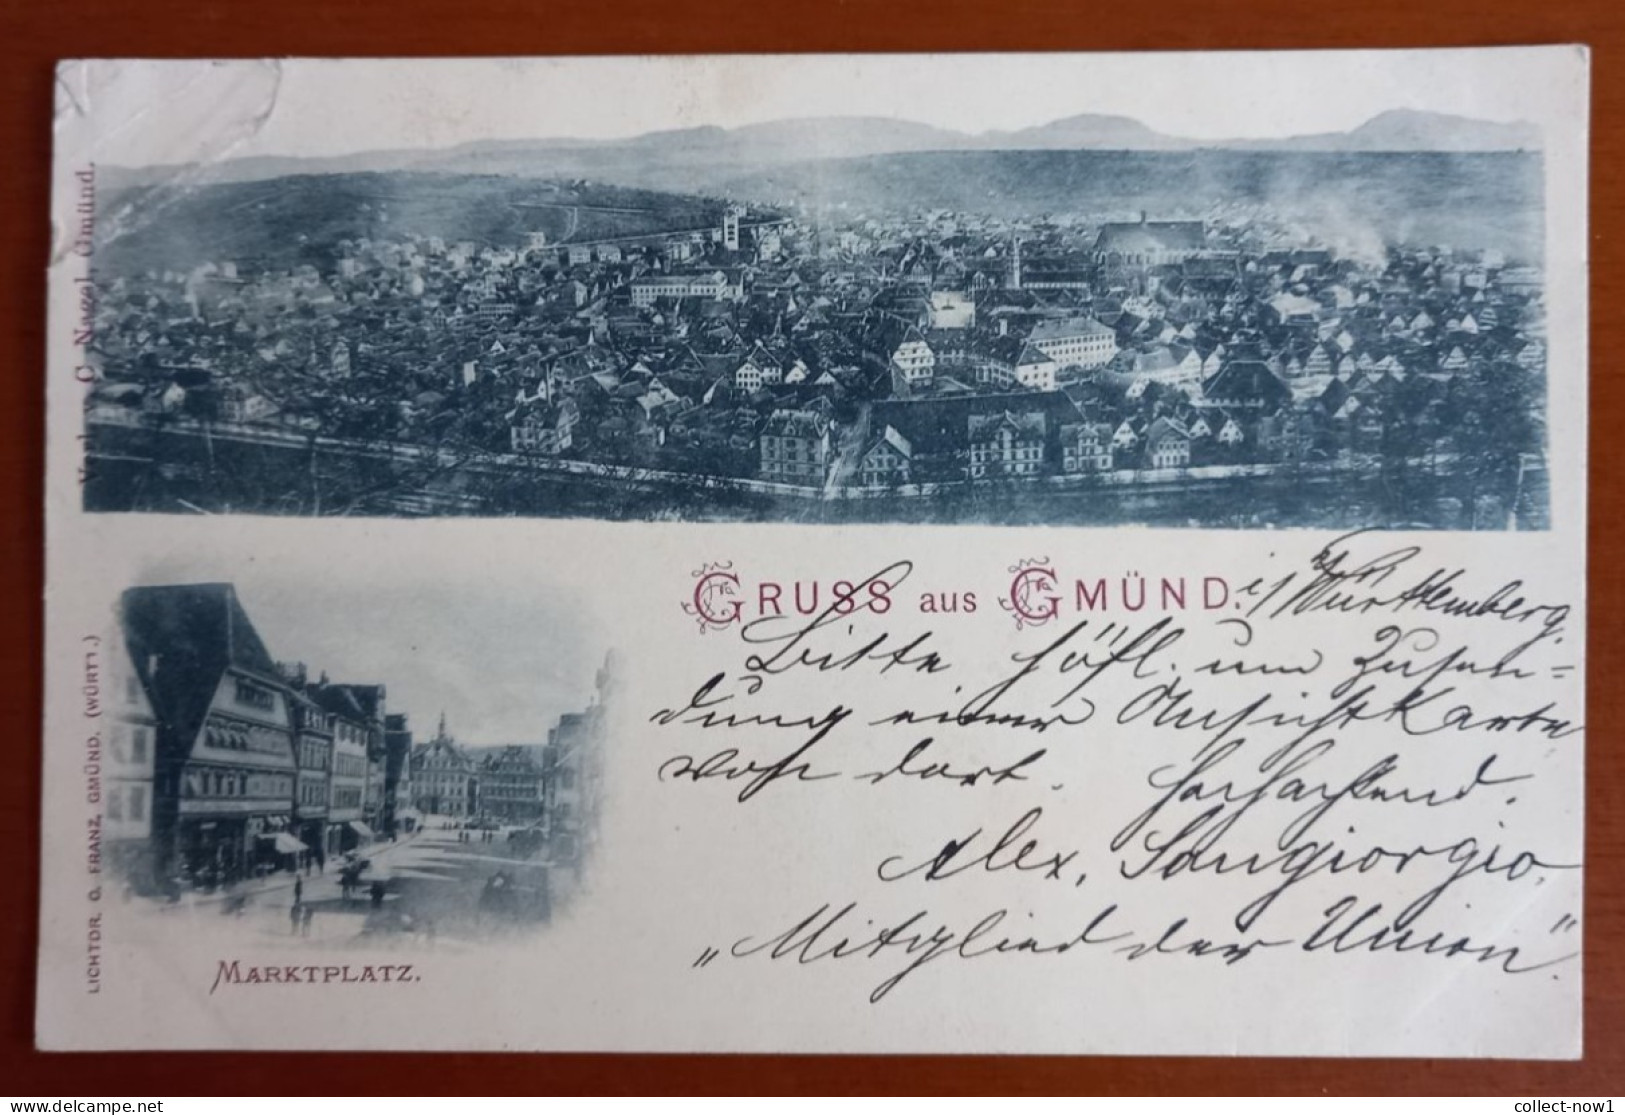 Verl. v. C. Nagel, Gmünd.
GRUSS aus GMÜND. i/Württemberg.
Bitte höfl. um Zusen=
dung einer Ansichtkarte
von dort. Hochachtend.
Alex. Sangiorgio.
„Mitglied der Union".
MARKTPLATZ.
LICHTDR. O. FRANZ, GMÜND. (WÜRTT.)
collect-now1